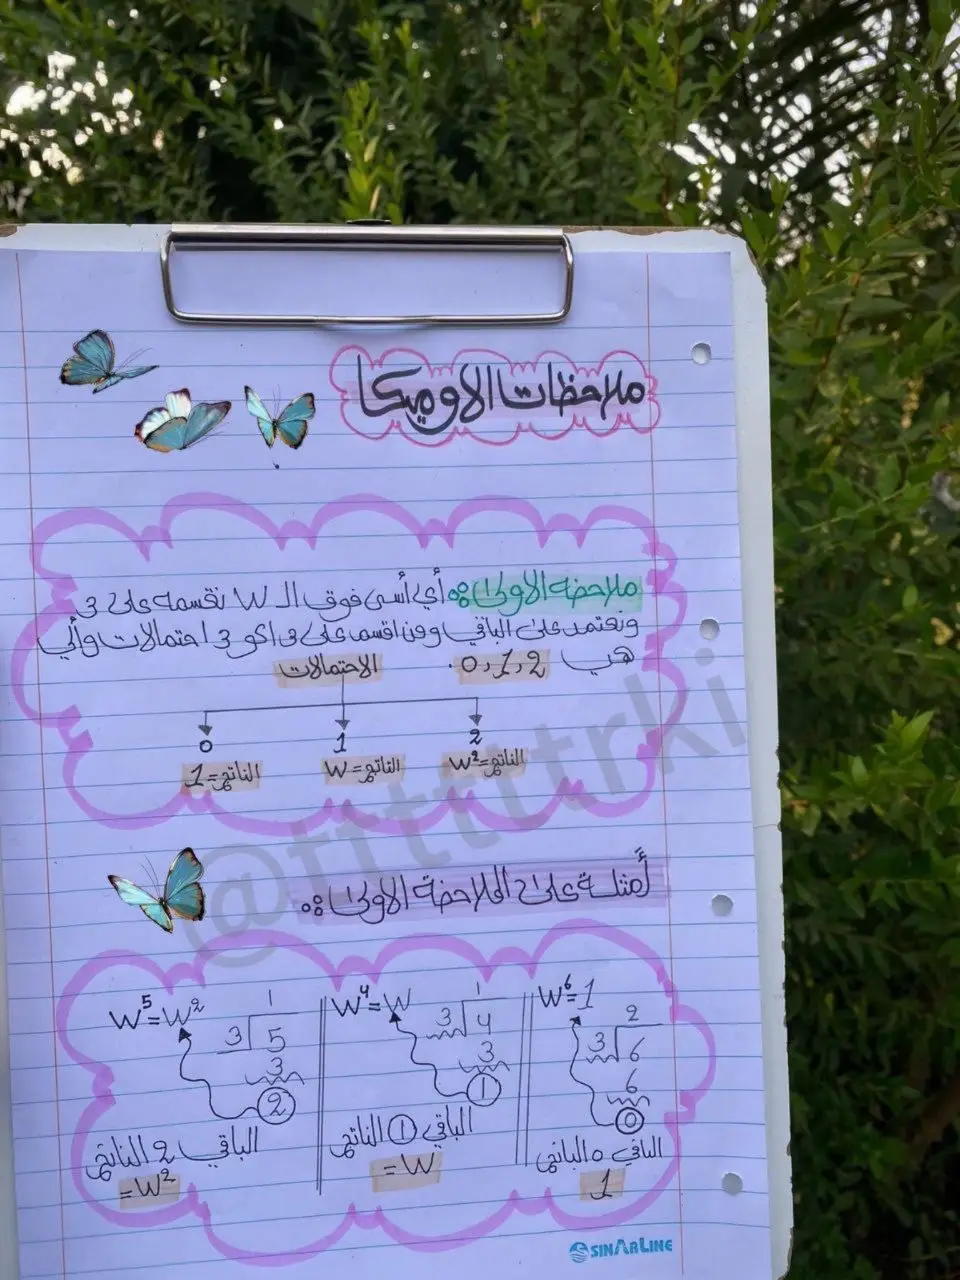 ملاحظات الاوميكا
ملاحضه الاولى: أي أس فوق الـ W نقسمه على 3
ونعتمد على الباقي ومن اقسم على 3 اكو 3 احتمالات وألي
هب 0,1,2.
الاحتمالات
0 1 2
الناتج=1 الناتج=W الناتج=W²
أمثلة على الملاحضة الاولى:
W⁶=1
2
3 6
6
0
الباقي 0 الناتج
1
W⁴=W
1
3 4
3
1
الباقي 1 الناتج
=W
W⁵=W²
1
3 5
3
2
الباقي 2 الناتج
=W²
@ftttttrki
SINARLINE